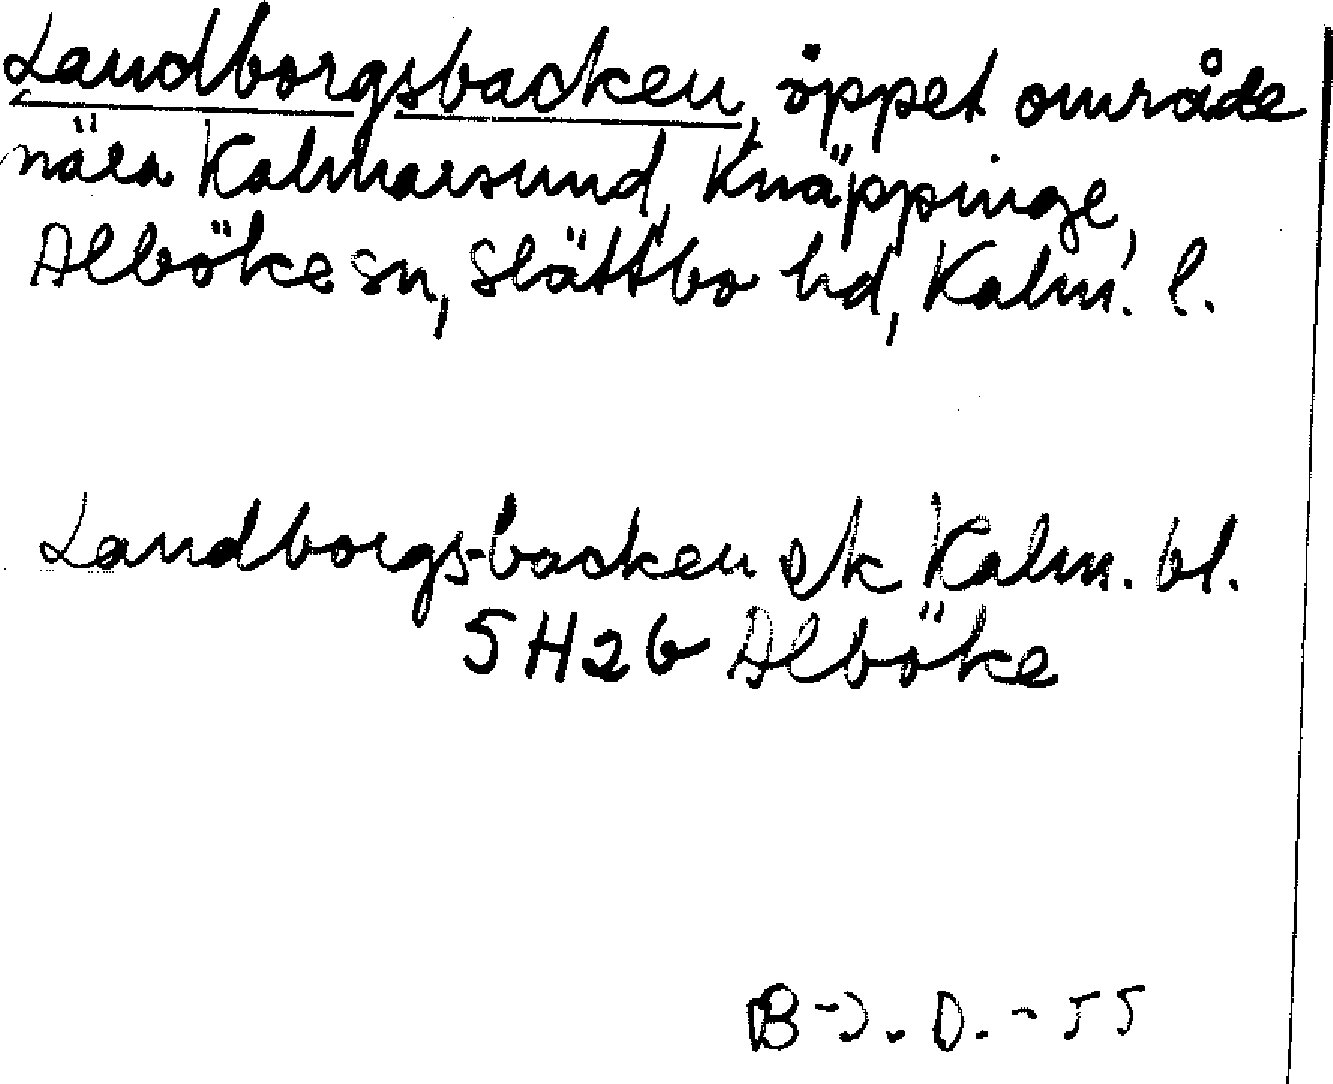 Landborgsbacken, öppet område
nära Kalmarsund, Knäppinge,
Alböke sn, Slättbo hd, Kalm. l.
Landborgs-backen e/k Kalm. bl.
5H2b Alböke
B-J. D. -55